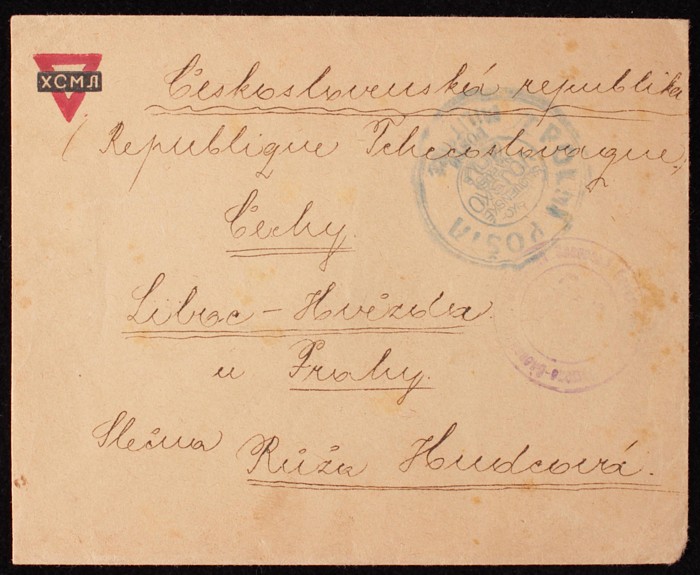 ХСМЛ
Československá republika
(Republique Tchecoslovaque)
Čechy.
Liboc – Hvězda
u Prahy.
Slečna Růža Hudcová.
POLNÍ POŠTA